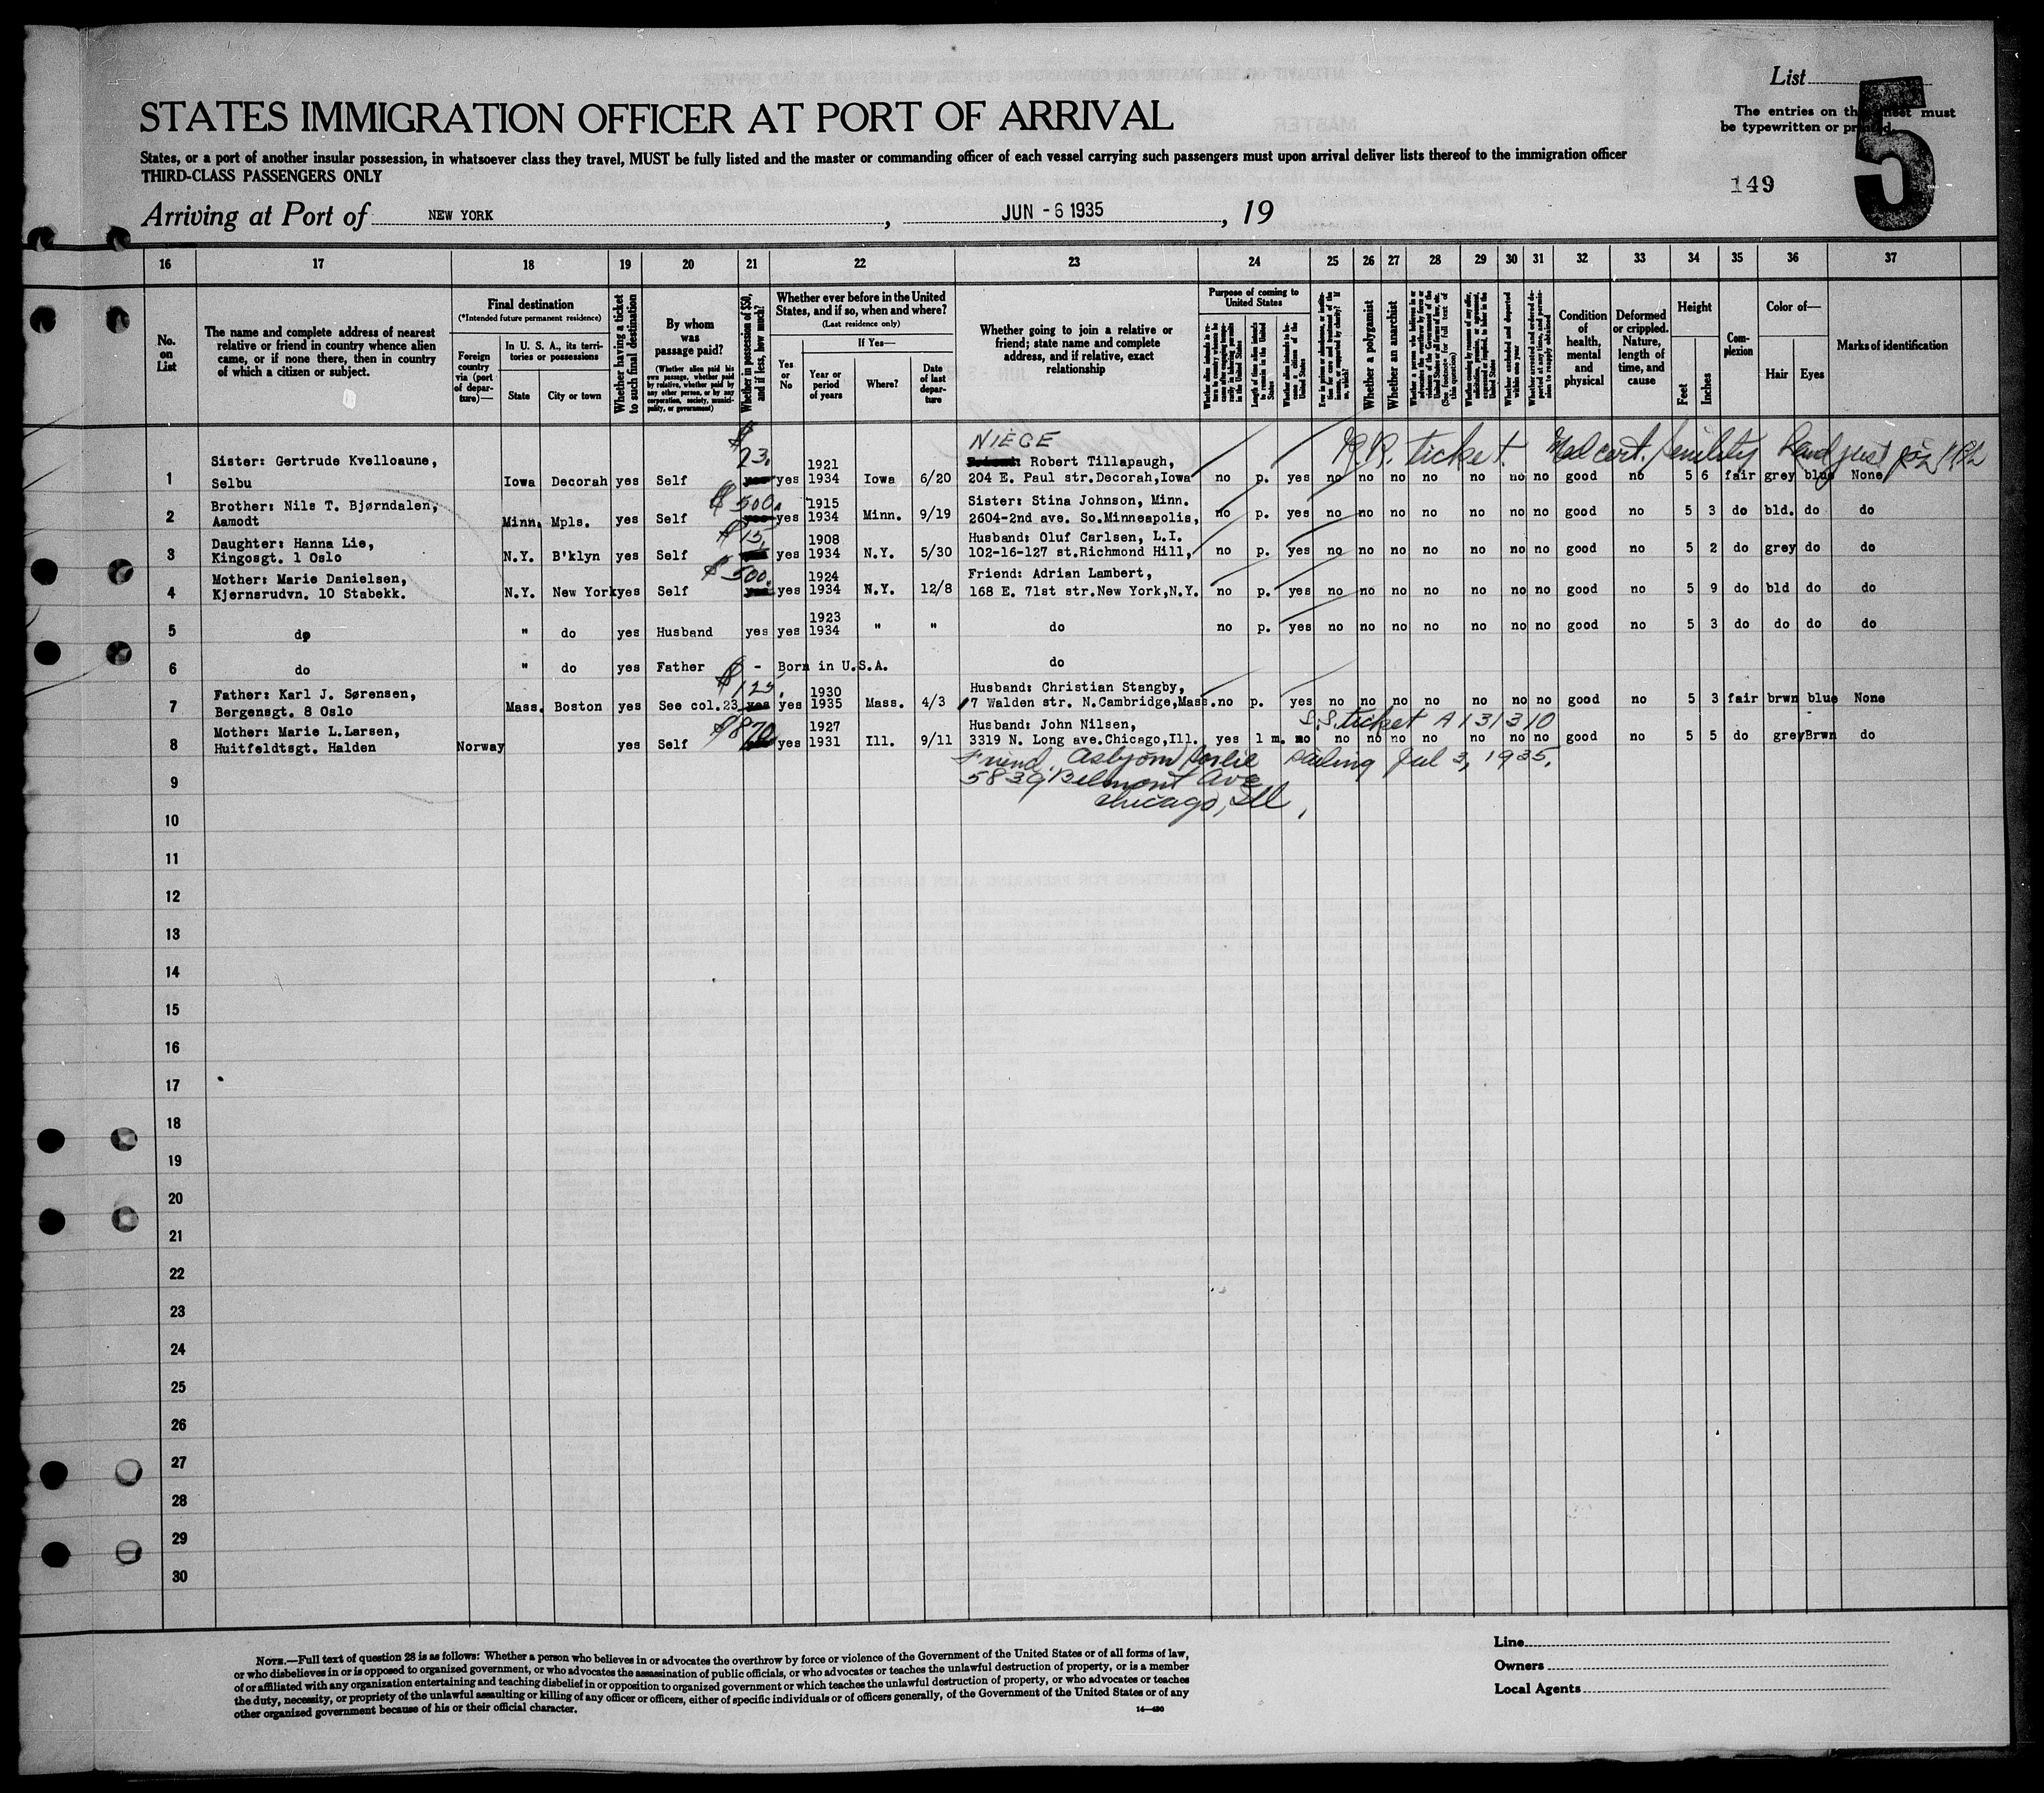 List
5
The entries on this sheet must
be typewritten or printed.
STATES IMMIGRATION OFFICER AT PORT OF ARRIVAL
States, or a port of another insular possession, in whatsoever class they travel, MUST be fully listed and the master or commanding officer of each vessel carrying such passengers must upon arrival deliver lists thereof to the immigration officer
THIRD-CLASS PASSENGERS ONLY
149
Arriving at Port of NEW YORK , JUN - 6 1935 , 19
16 17 18 19 20 21 22 23 24 25 26 27 28 29 30 31 32 33 34 35 36 37
No. on List
The name and complete address of nearest relative or friend in country whence alien came, or if none there, then in country of which a citizen or subject.
Final destination
(*Intended future permanent residence)
Foreign country via (port of departure)—
In U. S. A., its territories or possessions
State
City or town
Whether having a ticket to such final destination
By whom was passage paid?
(Whether alien paid his own passage, whether paid by relative, whether paid by any other person, or by any corporation, society, municipality, or government)
Whether in possession of $50, and if less, how much?
Whether ever before in the United States, and if so, when and where?
(Last residence only)
Yes or No
If Yes—
Year or period of years
Where?
Date of last departure
Whether going to join a relative or friend; state name and complete address, and if relative, exact relationship
Purpose of coming to United States
Whether a polygamist
Whether an anarchist
Condition of health, mental and physical
Deformed or crippled. Nature, length of time, and cause
Height
Feet
Inches
Complexion
Color of—
Hair
Eyes
Marks of identification
$ 23. NIECE R.R. ticket. Med cert. senility
Sister: Gertrude Kvelloaune, 1921 Robert Tillapaugh,
1 Selbu Iowa Decorah yes Self yes 1934 Iowa 6/20 204 E. Paul str.Decorah,Iowa no p. yes no no no no no no no good no 5 6 fair grey blue None
Brother: Nils T. Bjørndalen, $500. 1915 Sister: Stina Johnson, Minn.
2 Aamodt Minn. Mpls. yes Self yes yes 1934 Minn. 9/19 2604-2nd ave. So.Minneapolis, no p. yes no no no no no no no good no 5 3 do bld. do do
Daughter: Hanna Lie, $15. 1908 Husband: Oluf Carlsen, L.I.
3 Kingosgt. 1 Oslo N.Y. B'klyn yes Self yes 1934 N.Y. 5/30 102-16-127 st.Richmond Hill, no p. yes no no no no no no no good no 5 2 do grey do do
Mother: Marie Danielsen, $500. 1924 Friend: Adrian Lambert,
4 Kjernsrudvn. 10 Stabekk. N.Y. New York yes Self yes yes 1934 N.Y. 12/8 168 E. 71st str.New York,N.Y. no p. yes no no no no no no no good no 5 9 do bld do do
1923
5 do " do yes Husband yes yes 1934 " " do no p. yes no no no no no no no good no 5 3 do do do do
6 do " do yes Father - Born in U.S.A. do
Father: Karl J. Sørensen, $125. 1930 Husband: Christian Stangby,
7 Bergensgt. 8 Oslo Mass. Boston yes See col.23 yes yes 1935 Mass. 4/3 17 Walden str. N.Cambridge,Mass. no p. yes no no no no no no no good no 5 3 fair brwn blue None
Mother: Marie L.Larsen, $870 1927 Husband: John Nilsen, S.S. ticket A 131310
8 Huitfeldtsgt. Halden Norway yes Self yes 1931 Ill. 9/11 3319 N. Long ave.Chicago,Ill. yes 1 m. no no no no no no no no good no 5 5 do grey Brwn do
Friend. Asbjorn sailing Jul 3, 1935.
9 5839 Belmont Ave
Chicago, Ill.
10
11
12
13
14
15
16
17
18
19
20
21
22
23
24
25
26
27
28
29
30
NOTE.—Full text of question 28 is as follows: Whether a person who believes in or advocates the overthrow by force or violence of the Government of the United States or of all forms of law,
or who disbelieves in or is opposed to organized government, or who advocates the assassination of public officials, or who advocates or teaches the unlawful destruction of property, or is a member
of or affiliated with any organization entertaining and teaching disbelief in or opposition to organized government or which teaches the unlawful destruction of property, or who advocates or teaches
the duty, necessity, or propriety of the unlawful assaulting or killing of any officer or officers, either of specific individuals or of officers generally, of the Government of the United States or of any
other organized government because of his or their official character.
14—490
Line
Owners
Local Agents